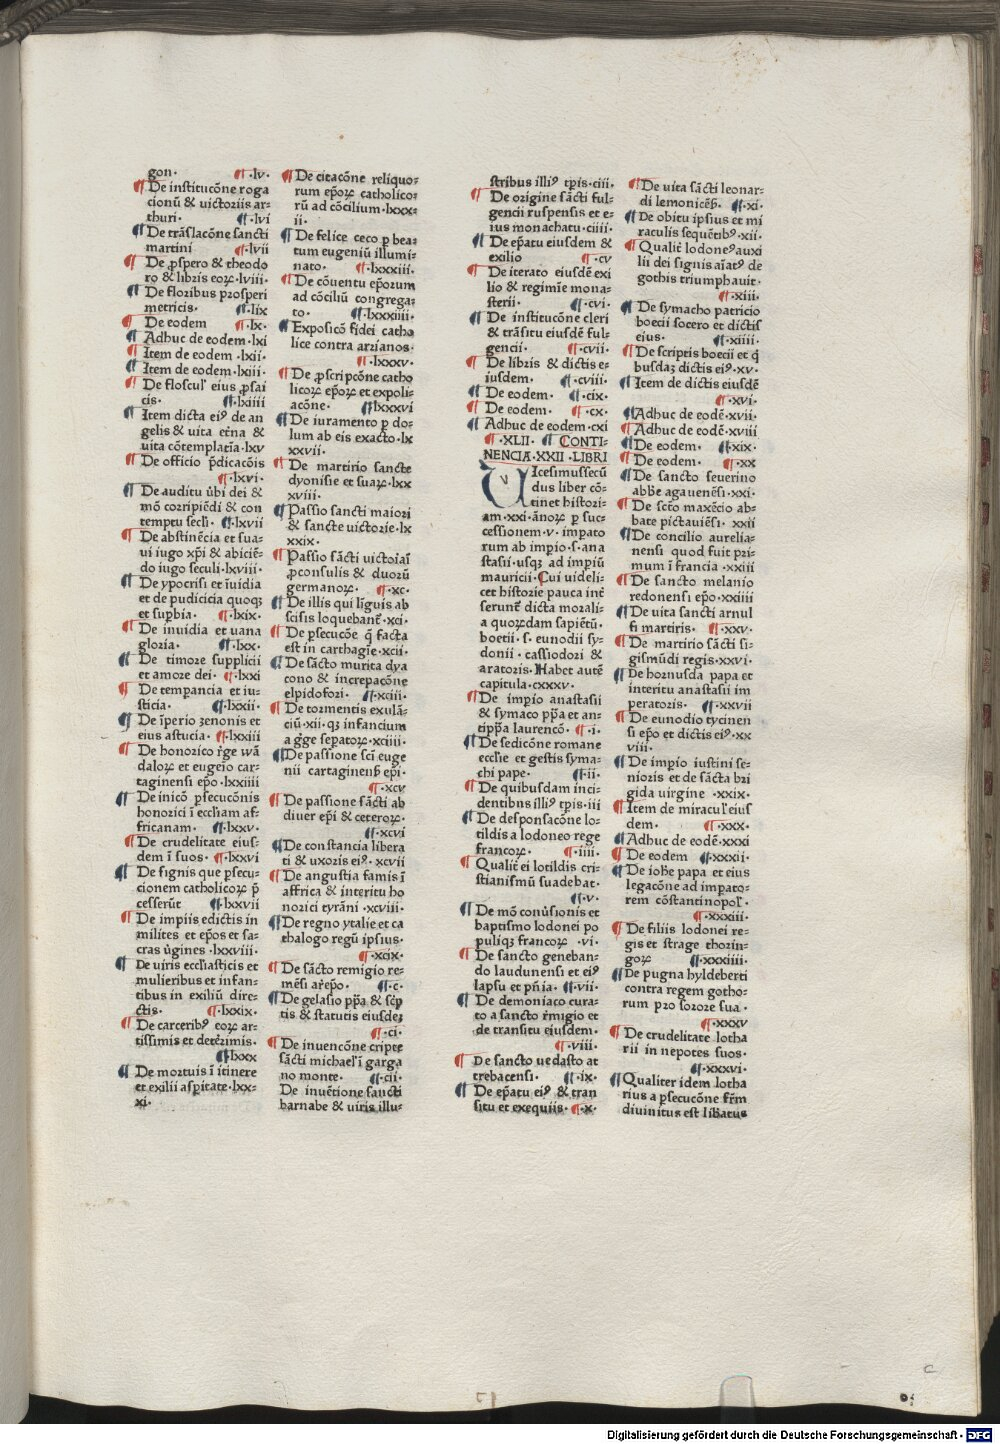 gon· ¶ ·lv·
¶ De institucōne roga
cionū & uictoriis ar-
thuri· ¶ ·lvi
¶ De trāslacōne sancti
martini ¶ ·lvii
¶ De ꝓspero & theodo
ro & libris eoꝝ·lviii·
¶ De floribus prosperi
metricis· ¶ ·lix
¶ De eodem ¶ ·lx·
¶ Adhuc de eodem·lxi
¶ Item de eodem·lxii·
¶ Item de eodem·xiii·
¶ De floscul' eius ꝓsai
cis· ¶ ·lxiiii
¶ Item dicta eiꝰ de an
gelis & uita et̄na &
uita cōtemplatīa·lxv
¶ De officio p̄dicacōis
¶ ·lxvi·
¶ De auditu ūbi dei &
mō corripiēdi & con
temptu secl̄i· ¶ ·lxvii
¶ De abstinēcia et sua-
ui iugo xp̄i & abiciē-
do iugo seculi·lxviii·
¶ De ypocrisi et īuidia
et de pudicicia quoqꝫ
et sup̄bia· ¶ ·lxix·
¶ De inuidia et uana
gloria· ¶ ·lxx·
¶ De timore supplicii
et amore dei· ¶ ·lxxi
¶ De temp̄ancia et iu-
sticia· ¶ ·lxxii·
¶ De īperio zenonis et
eius astucia· ¶ ·lxxiii
¶ De honorico r̄ge wā
daloꝝ et eugeīo car-
taginensi ep̄o·lxxiiii
¶ De inicō ꝑsecucōnis
honorici ī eccl̄iam af-
fricanam· ¶ ·lxxv·
¶ De crudelitate eius-
dem ī suos· ¶ ·lxxvi
¶ De signis que ꝑsecu-
cionem catholicoꝝ p̄
cesserūt ¶ ·lxxvii
¶ De impiis edictis in
milites et ep̄os et sa-
cras ūgines·lxxviii·
¶ De uiris eccl̄iasticis et
mulieribus et infan-
tibus in exiliū dire-
ctis· ¶ ·lxxix·
¶ De carceribꝰ eoꝝ ar-
tissimis et deterrimis·
¶ ·lxxx
¶ De mortuis ī itinere
et exilii asꝑitate·lxx-
xi·
¶ De citacōne reliquo-
rum ep̄oꝝ catholico-
rū ad cōcilium·lxxx-
ii·
¶ De felice ceco ꝑ bea-
tum eugeniū illumi-
nato· ¶ ·lxxxiii·
¶ De cōuentu ep̄orum
ad cōciliū congrega-
to· ¶ ·lxxxiiii·
¶ Exposicō fidei catho
lice contra arrianos·
¶ ·lxxxv·
¶ De ꝓscripcōne catho
licoꝝ ep̄oꝝ et expoli-
acōne· ¶ ·lxxxvi
¶ De iuramento ꝑ do-
lum ab eis exacto·lx
xxvii·
¶ De martirio sancte
dyonisie et suaꝝ·lxx
xviii·
¶ Passio sancti maiori
& sancte uictorie·lx
xxix·
¶ Passio sāncti uictoriāi
ꝓconsulis & duorū
germanoꝝ· ¶ ·xc·
¶ De illis qui līguis ab
scisis loquebant̄·xci·
¶ De ꝑsecucōe q̄ facta
est in carthagīe·xcii·
¶ De sācto murita dya
cono & increpacōne
elpidofori· ¶ ·xciii·
¶ De tormentis exulā-
ciū·xii·qꝫ infancium
a gr̄ge sep̄atoꝝ·xciiii·
¶ De passione scī euge
nii cartaginens̄ ep̄i·
¶ ·xcv
¶ De passione sācti ab
diuer ep̄i & ceteroꝝ·
¶ ·xcvi
¶ De constancia libera
ti & uxoris eiꝰ·xcvii
¶ De angustia famis ī
affrica & interitu ho
norici tyrāni·xcviii·
¶ De regno ytalie et ca
thalogo regū ipsius·
¶ ·xcix·
¶ De sācto remigio re-
mēsi ar̄ep̄o· ¶ ·c·
¶ De gelasio pp̄a & sc̄p
tis & statutis eiusdeꝫ
¶ ·ci·
¶ De inuencōne cripte
sācti michael' ī garga
no monte· ¶ ·cii·
De inuētione sancti
barnabe & uiris illu-
stribus illiꝰ tp̄is·ciii·
¶ De origine sācti ful-
gencii ruspensis et e-
ius monachatu·ciiii·
¶ De ep̄atu eiusdem &
exilio ¶ ·cv
¶ De iterato eiusdē exi
lio & regimīe mona-
sterii· ¶ ·cvi·
¶ De institucōne cleri
& trāsitu eiusdē ful-
gencii· ¶ ·cvii·
¶ De libris & dictis e-
iusdem· ¶ ·cviii·
¶ De eodem· ¶ ·cix·
¶ De eodem· ¶ ·cx·
¶ Adhuc de eodem·cxi
¶ ·XLII· ¶ CONTI-
NENCIA·XXII·LIBRI
VIcesimussecū
dus liber cō-
tinet histori-
am·xxi·ānoꝝ ꝑ suc-
cessionem·v·impato
rum ab imꝑio·s·ana
stasii·usqꝫ ad impiū
mauricii·Cui uideli-
cet historie pauca int̄
serunt̄ dicta morali-
a quoꝝdam sapiētū·
boetii·s·eunodii sy-
donii·cassiodori &
aratoris·Habet autē
capitula·cxxxv·
¶ De imꝑio anastasii
& symaco pp̄a et an-
tipp̄a laurencō· ¶ ·i·
¶ De sedicōne romane
eccl̄ie et gestis syma-
chi pape· ¶ ·ii·
¶ De quibusdam inci-
dentibus illiꝰ tp̄is·iii
¶ De desponsacōne lo-
tildis a lodoneo rege
francoꝝ· ¶ ·iiii·
¶ Qualit̄ ei lotildis cri-
stianismū suadebat·
¶ ·v·
¶ De mō conūsionis et
baptismo lodonei po
puliqꝫ francoꝝ ·vi·
¶ De sancto geneban-
do laudunensi et eiꝰ
lapsu et pn̄ia· ¶ ·vii·
¶ De demoniaco cura-
to a sancto r̄migio et
de transitu eiusdem·
¶ ·viii·
¶ De sancto uedasto at
trebacensi· ¶ ·ix·
¶ De ep̄atu eiꝰ & tran
situ et exequiis· ¶ ·x·
¶ De uita sācti leonar-
di lemonicēs̄· ¶ ·xi·
¶ De obitu ipsius et mi
raculis sequētibꝰ·xii·
¶ Qualit̄ lodoneꝰ auxi
lii dei signis aīatꝰ de
gothis triumphauit·
¶ ·xiii·
¶ De symacho patricio
boecii socero et dictis
eius· ¶ ·xiiii·
¶ De scriptis boecii et q̄
busdaꝫ dictis eiꝰ·xv·
¶ Item de dictis eiusdē
¶ ·xvi·
¶ Adhuc de eodē·xvii·
¶ Adhuc de eodē·xviii
¶ De eodem· ¶ ·xix·
¶ De eodem· ¶ ·xx
¶ De sancto seuerino
abbe agauenēsi·xxi·
¶ De sctō maxēcio ab-
bate pictauiēsi· xxii
¶ De concilio aurelia-
nensi quod fuit pri-
mum ī francia·xxiii
¶ De sancto melanio
redonensi ep̄o·xxiiii
¶ De uita sancti arnul
fi martiris· ¶ ·xxv·
¶ De martirio sācti si-
gismūdi regis·xxvi·
¶ De hornusda papa et
interitu anastasii im
peratoris· ¶ ·xxvii
¶ De eunodio tycinen
si ep̄o et dictis eiꝰ·xx
viii·
¶ De imꝑio iustini se-
nioris et de sācta bri
gida uirgine ·xxix·
¶ Item de miracul' eius
dem· ¶ ·xxx·
¶ Adhuc de eodē·xxxi
¶ De eodem ¶ ·xxxii·
¶ De ioh̄e papa et eius
legacōne ad impato-
rem cōstantinopol'·
¶ ·xxxiii·
¶ De filiis lodonei re-
gis et strage thorin-
goꝝ ¶ ·xxxiiii·
¶ De pugna hyldeberti
contra regem gotho-
rum pro sorore sua·
¶ ·xxxv
¶ De crudelitate lotha
rii in nepotes suos·
¶ ·xxxvi·
¶ Qualiter idem lotha
rius a ꝑsecucōne fr̄m
diuinitus est lib̄atus
c
Digitalisierung gefördert durch die Deutsche Forschungsgemeinschaft · DFG